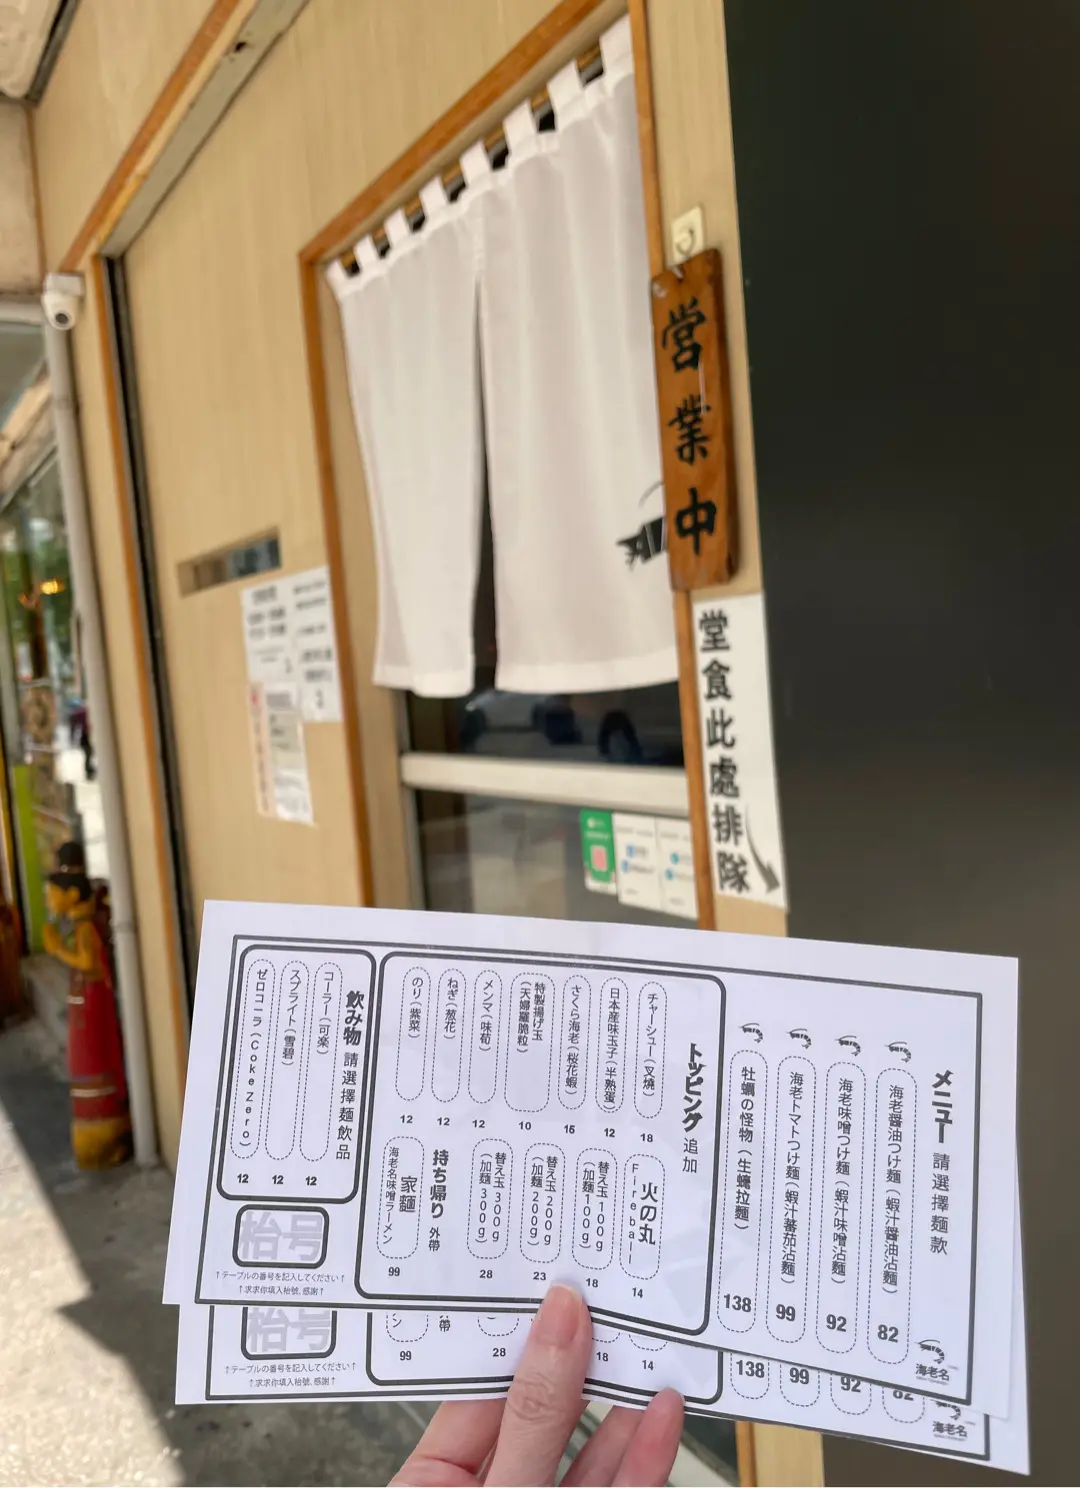 営業中
堂食此處排隊
メニュー 請選擇麵款
海老醤油つけ麵(蝦汁醤油沾麵) 82
海老味噌つけ麵(蝦汁味噌沾麵) 92
海老トマトつけ麵(蝦汁蕃茄沾麵) 99
牡蠣の怪物(生蠔拉麵) 138
海老名
トッピング 追加
チャーシュー(叉燒) 18
日本産味玉子(半熟蛋) 12
さくら海老(桜花蝦) 15
特製揚げ玉(天婦羅脆粒) 10
メンマ(味荀) 12
ねぎ(葱花) 12
のり(紫菜) 12
火の丸 Fireball 14
替え玉100g(加麵100g) 18
替え玉200g(加麵200g) 23
替え玉300g(加麵300g) 28
持ち帰り 外帶
家麵
海老名味噌ラーメン 99
飲み物 請選擇麵飲品
コーラー(可楽) 12
スプライト(雪碧) 12
ゼロコーラ(Coke Zero) 12
枱号
↑テーブルの番号を記入してください↑
↑求求你填入枱號,感謝↑
枱号
↑テーブルの番号を記入してください↑
↑求求你填入枱號,感謝↑
ン
99
帶
28
18
14
138
99
92
82
海老名